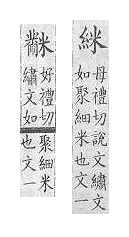 絊
母禮切說文繡文
如聚細米也文一
好禮切
繡文如
聚細米
也文一